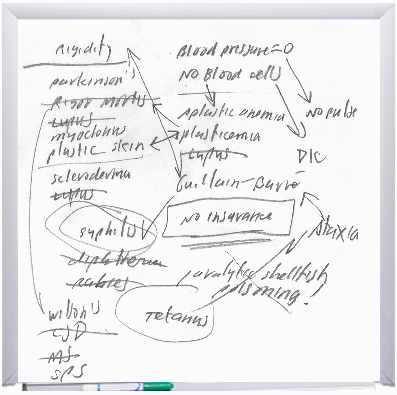 rigidity
parkinson's
Rigor mortis
Lupus
myoclonus
plastic skin
scleroderma
Lupus
syphilis
diphtheria
rabies
wilson's
CJD
MS
SPS
Blood pressure=0
No Blood cells
aplastic anemia
No pulse
plasticemia
Lupus
DIC
Guillain-Barré
No insurance
Ataxia
paralytic shellfish
poisoning!
Tetanus